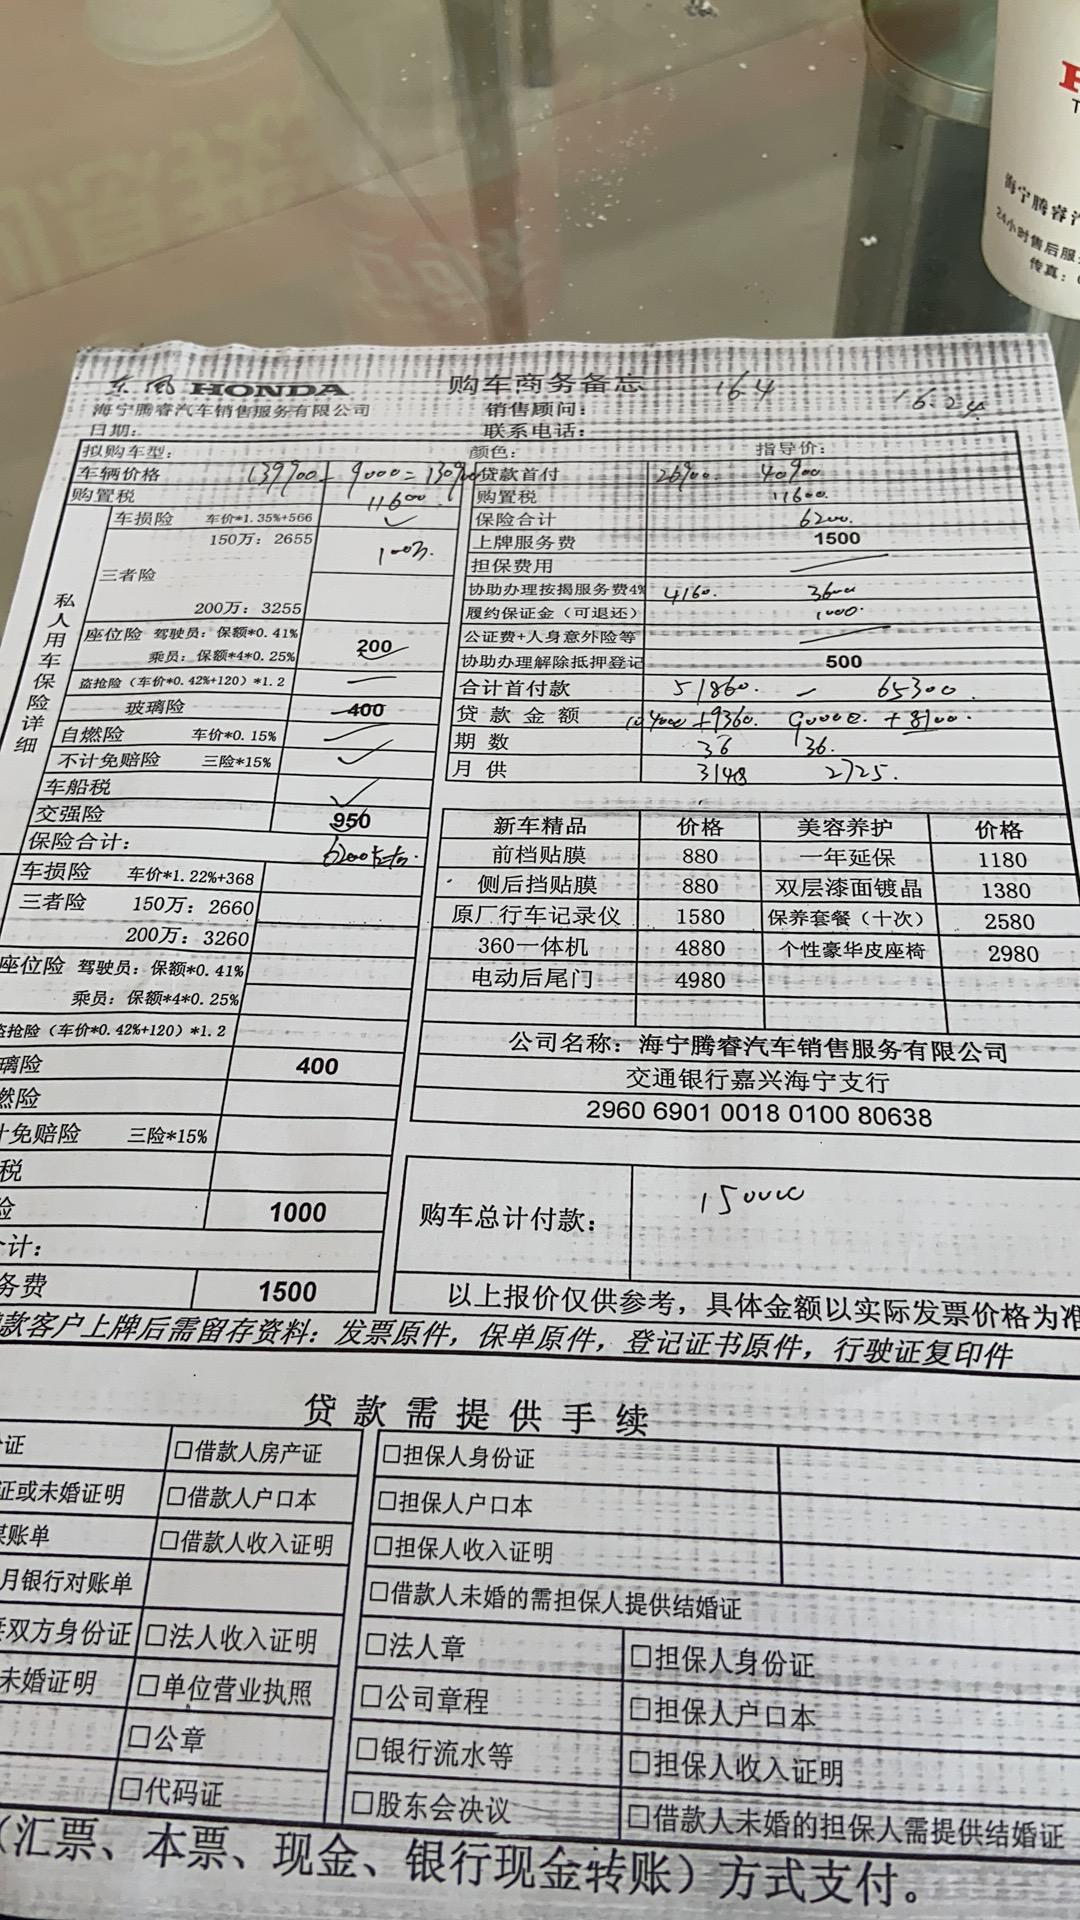 海宁腾睿汽
24小时售后服
传真：
东风 HONDA 购车商务备忘 16.4 16.24
海宁腾睿汽车销售服务有限公司 销售顾问：
日期： 联系电话：
拟购车型： 颜色： 指导价：
车辆价格 139900 - 9000 = 130900 贷款首付 26900. 40900
购置税 11600 购置税 11600.
私人用车保险详细
车损险 车价*1.35%+566 ✓ 保险合计 6200.
三者险 150万：2655 100万. 上牌服务费 1500
担保费用 —
200万：3255 协助办理按揭服务费4% 4160. 3600
履约保证金（可退还） 1000.
座位险 驾驶员：保额*0.41% 200 公证费+人身意外险等 —
乘员：保额*4*0.25% 协助办理解除抵押登记 500
盗抢险（车价*0.42%+120）*1.2 — 合计首付款 51860. — 65300.
玻璃险 400 贷款金额 104000 +9360. 90000. +8100.
自燃险 车价*0.15% — 期数 36 36.
不计免赔险 三险*15% ✓ 月供 3148 2725.
车船税 ✓
交强险 950
保险合计： 6200左右.
新车精品 价格 美容养护 价格
前档贴膜 880 一年延保 1180
侧后挡贴膜 880 双层漆面镀晶 1380
原厂行车记录仪 1580 保养套餐（十次） 2580
360一体机 4880 个性豪华皮座椅 2980
电动后尾门 4980
车损险 车价*1.22%+368
三者险 150万：2660
200万：3260
座位险 驾驶员：保额*0.41%
乘员：保额*4*0.25%
盗抢险（车价*0.42%+120）*1.2
璃险 400
燃险
计免赔险 三险*15%
税
险 1000
计：
务费 1500
公司名称：海宁腾睿汽车销售服务有限公司
交通银行嘉兴海宁支行
2960 6901 0018 0100 80638
购车总计付款： 150000
以上报价仅供参考，具体金额以实际发票价格为准
款客户上牌后需留存资料：发票原件，保单原件，登记证书原件，行驶证复印件
贷款需提供手续
证 □借款人房产证 □担保人身份证
证或未婚证明 □借款人户口本 □担保人户口本
账单 □借款人收入证明 □担保人收入证明
月银行对账单 □借款人未婚的需担保人提供结婚证
双方身份证 □法人收入证明 □法人章 □担保人身份证
未婚证明 □单位营业执照 □公司章程 □担保人户口本
□公章 □银行流水等 □担保人收入证明
□代码证 □股东会决议 □借款人未婚的担保人需提供结婚证
（汇票、本票、现金、银行现金转账）方式支付。